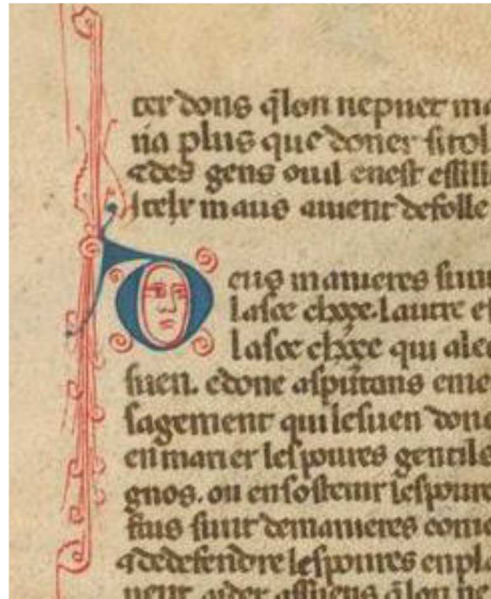 ter dons q̃lon nepuet ma
na plus que doner si fol
a des gens ou il en est essill
Itelx maus auient de folle
Deus manieres sunt
laste chxxe. lautre es
laste chxxe qui ale
suen. e done as putans e me
sagement qui le suen done
en marier les poures gentils
gnos. ou en sostenir les poure
tius sunt de manieres come
a dedefendre les poures en pla
nent aider assuens q̃lon ne